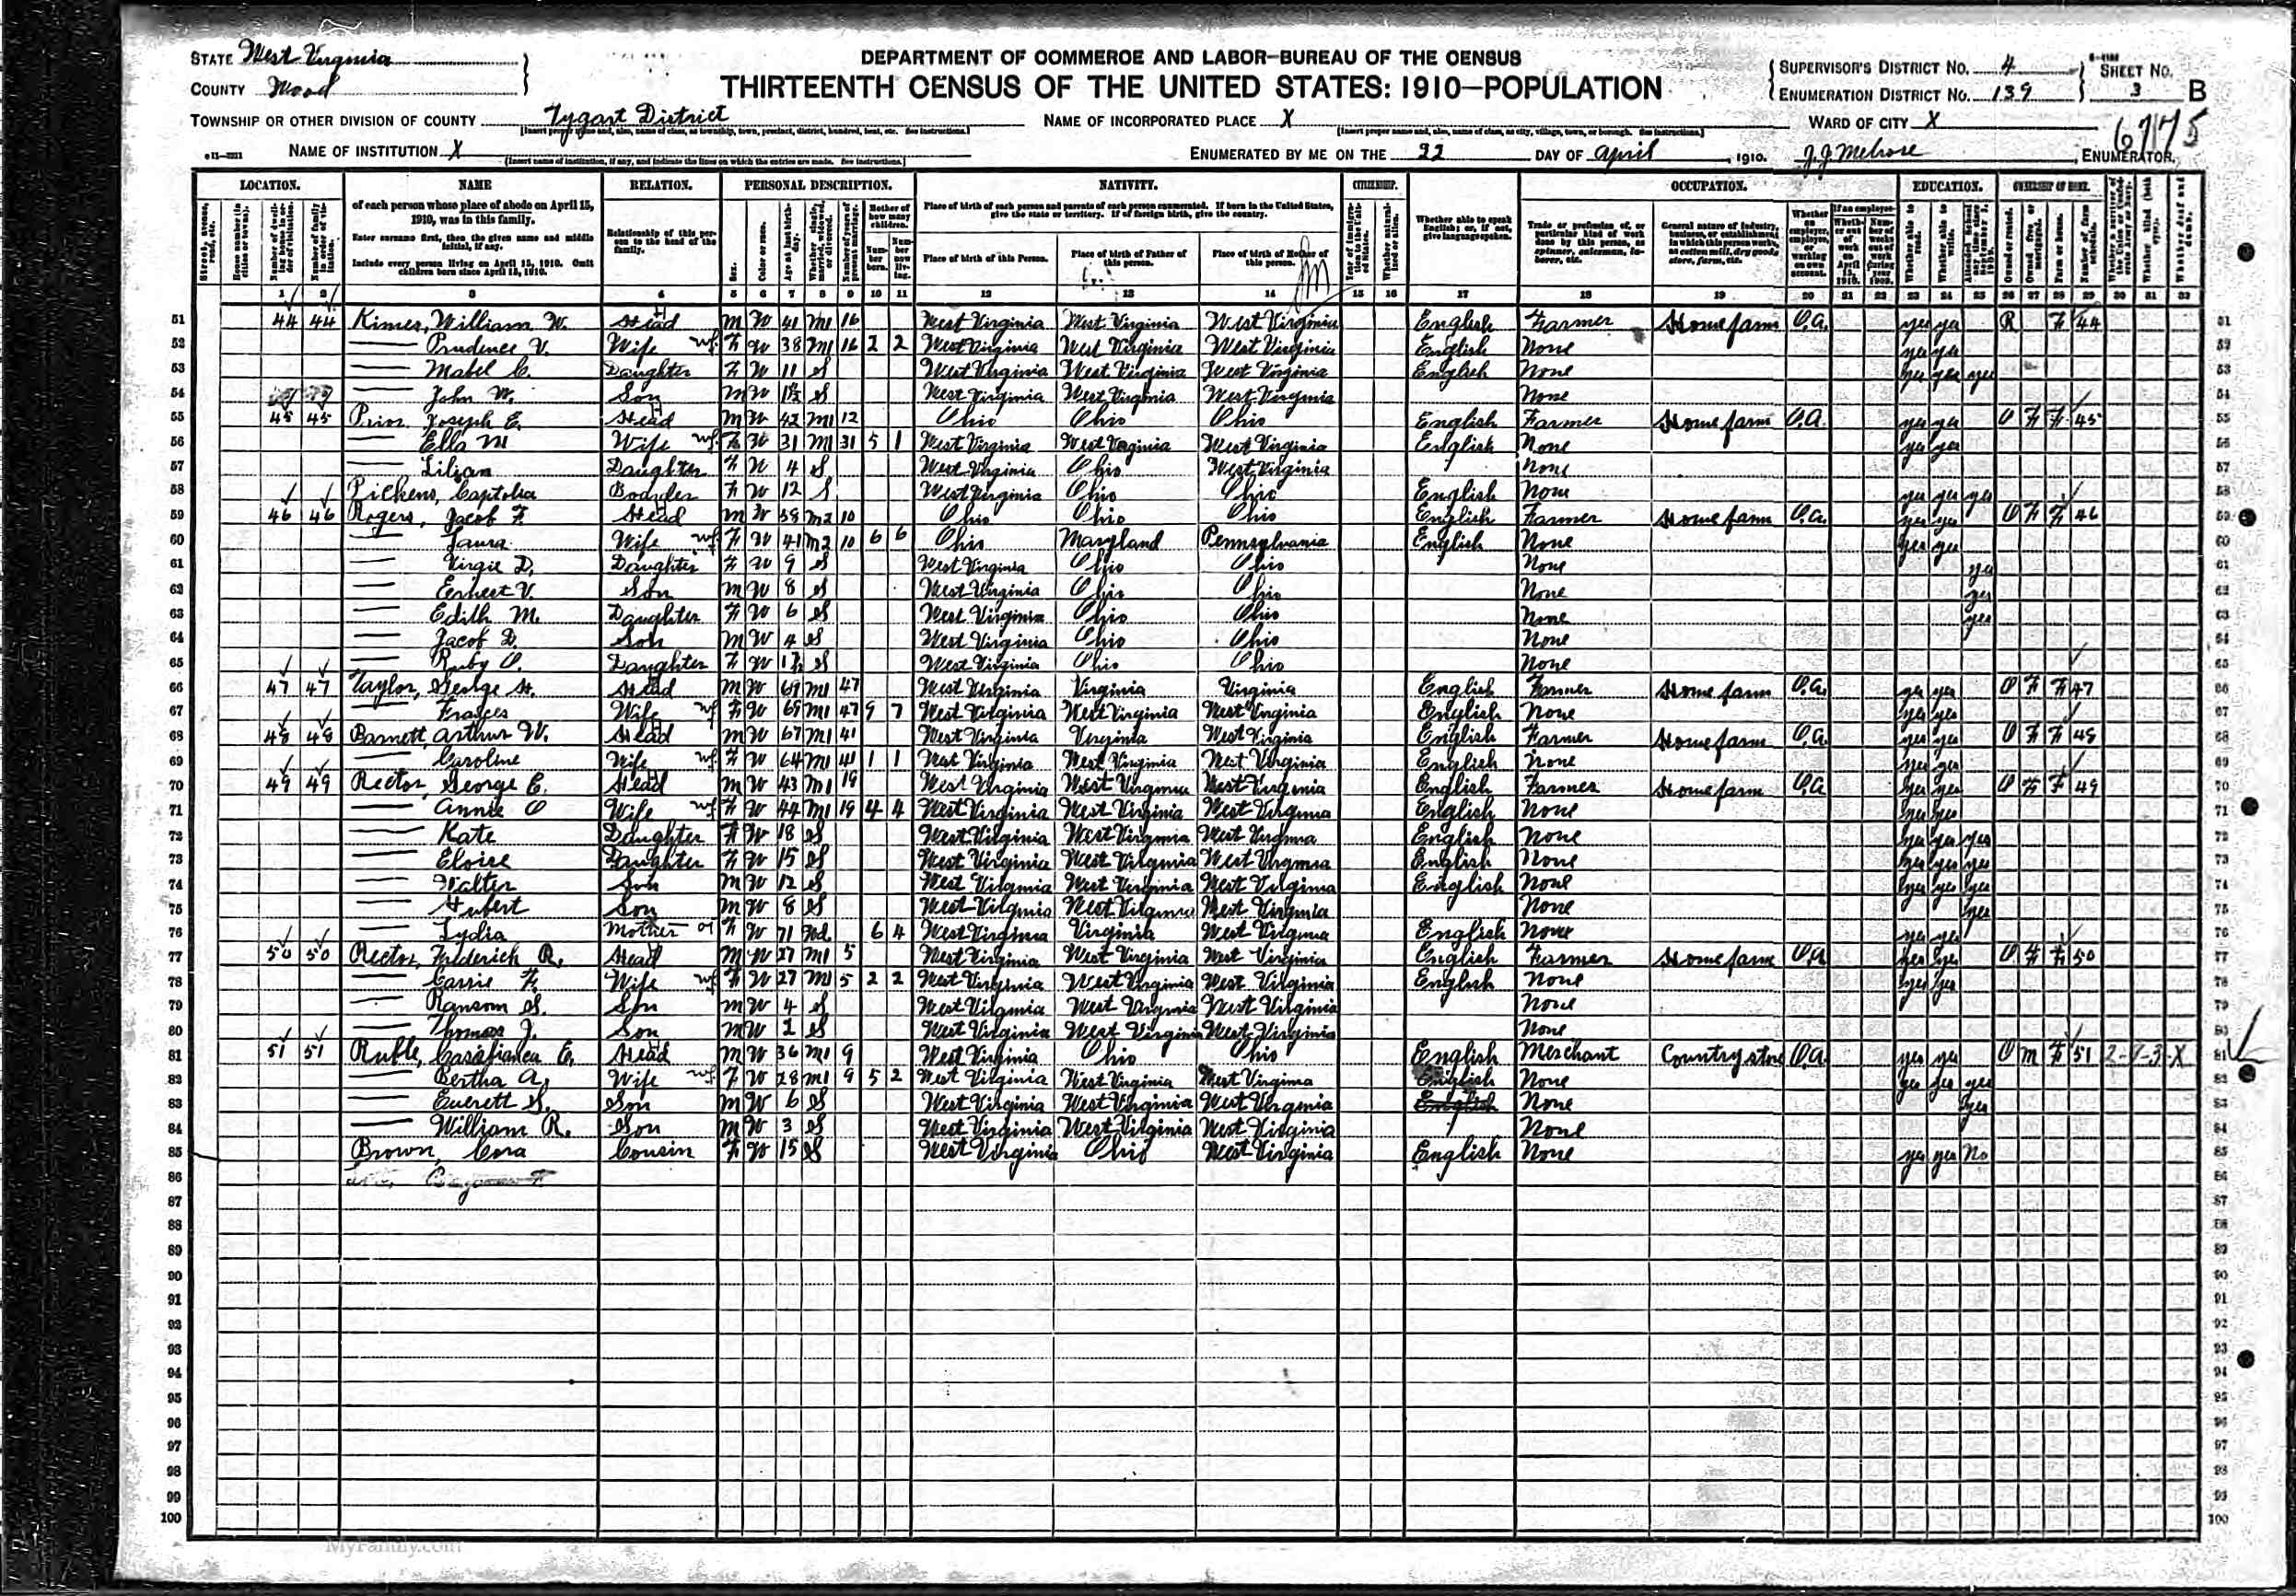 STATE West Virginia
COUNTY Wood
DEPARTMENT OF COMMERCE AND LABOR—BUREAU OF THE CENSUS
THIRTEENTH CENSUS OF THE UNITED STATES: 1910—POPULATION
SUPERVISOR'S DISTRICT No. 4
ENUMERATION DISTRICT No. 139
SHEET No. 3 B
TOWNSHIP OR OTHER DIVISION OF COUNTY Tygart District
NAME OF INCORPORATED PLACE X
WARD OF CITY X
6775
NAME OF INSTITUTION X
ENUMERATED BY ME ON THE 22 DAY OF April, 1910. J. J. Melrose, ENUMERATOR.
LOCATION. NAME RELATION. PERSONAL DESCRIPTION. NATIVITY. CITIZENSHIP. OCCUPATION. EDUCATION. OWNERSHIP OF HOME.
of each person whose place of abode on April 15, 1910, was in this family.
Enter surname first, then the given name and middle initial, if any.
Include every person living on April 15, 1910. Omit children born since April 15, 1910.
Relationship of this person to the head of the family.
Place of birth of each person and parents of each person enumerated. If born in the United States, give the state or territory. If of foreign birth, give the country.
Place of birth of this Person. Place of birth of Father of this person. Place of birth of Mother of this person.
Whether able to speak English; or, if not, give language spoken.
1 2 3 4 5 6 7 8 9 10 11 12 13 14 15 16 17 18 19 20 21 22 23 24 25 26 27 28 29 30 31 32
51 44 44 Kimes, William W. Head M W 41 M1 16 West Virginia West Virginia West Virginia English Farmer Home farm O.A. yes yes R F 44 51
52 Prudence V. Wife F W 38 M1 16 2 2 West Virginia West Virginia West Virginia English None yes yes 52
53 Mabel C. Daughter F W 11 S West Virginia West Virginia West Virginia English None yes yes yes 53
54 John W. Son M W S West Virginia West Virginia West Virginia None 54
55 45 45 Prior Joseph E. Head M W 42 M1 12 Ohio Ohio Ohio English Farmer Home farm O.A. yes yes O F F 45 55
56 Ella M Wife F W 31 M1 31 5 1 West Virginia West Virginia West Virginia English None yes yes 56
57 Lilian Daughter F W 4 S West Virginia Ohio West Virginia None 57
58 Pickens, Capitolia Boarder F W 12 S West Virginia Ohio Ohio English None yes yes yes 58
59 46 46 Rogers, Jacob F. Head M W 58 M2 10 Ohio Ohio Ohio English Farmer Home farm O.A. yes yes O F F 46 59
60 Laura Wife F W 41 M2 10 6 6 Ohio Maryland Pennsylvania English None yes yes 60
61 Virgie D. Daughter F W 9 S West Virginia Ohio Ohio None yes 61
62 Ernest V. Son M W 8 S West Virginia Ohio Ohio None yes 62
63 Edith M. Daughter F W 6 S West Virginia Ohio Ohio None yes 63
64 Jacob D. Son M W 4 S West Virginia Ohio Ohio None 64
65 Ruby O. Daughter F W S West Virginia Ohio Ohio None 65
66 47 47 Taylor, George H. Head M W 69 M1 47 West Virginia Virginia Virginia English Farmer Home farm O.A. yes yes O F F 47 66
67 Frances Wife F W 65 M1 47 9 7 West Virginia West Virginia West Virginia English None yes yes 67
68 48 48 Barnett, Arthur W. Head M W 67 M1 41 West Virginia Virginia West Virginia English Farmer Home farm O.A. yes yes O F F 48 68
69 Caroline Wife F W 64 M1 41 1 1 West Virginia West Virginia West Virginia English None yes yes 69
70 49 49 Rector, George E. Head M W 43 M1 19 West Virginia West Virginia West Virginia English Farmer Home farm O.A. yes yes O F F 49 70
71 Annie O Wife F W 44 M1 19 4 4 West Virginia West Virginia West Virginia English None yes yes 71
72 Kate Daughter F W 18 S West Virginia West Virginia West Virginia English None yes yes yes 72
73 Eloise Daughter F W 15 S West Virginia West Virginia West Virginia English None yes yes yes 73
74 Walter Son M W 12 S West Virginia West Virginia West Virginia English None yes yes yes 74
75 Hubert Son M W 8 S West Virginia West Virginia West Virginia None yes 75
76 Lydia Mother F W 71 Wd. 6 4 West Virginia Virginia West Virginia English None yes yes 76
77 50 50 Rector, Frederick R. Head M W 27 M1 5 West Virginia West Virginia West Virginia English Farmer Home farm O.A. yes yes O F F 50 77
78 Carrie F. Wife F W 27 M1 5 2 2 West Virginia West Virginia West Virginia English None yes yes 78
79 Ransom S. Son M W 4 S West Virginia West Virginia West Virginia None 79
80 Thomas J. Son M W 2 S West Virginia West Virginia West Virginia None 80
81 51 51 Ruble, Casabianca E. Head M W 36 M1 9 West Virginia Ohio Ohio English Merchant Country store O.A. yes yes O M F 51 81
82 Bertha A. Wife F W 28 M1 9 5 2 West Virginia West Virginia West Virginia English None yes yes yes 82
83 Everett S. Son M W 6 S West Virginia West Virginia West Virginia English None yes 83
84 William R. Son M W 3 S West Virginia West Virginia West Virginia None 84
85 Brown, Cora Cousin F W 15 S West Virginia Ohio West Virginia English None yes yes No 85
86 86
87 87
88 88
89 89
90 90
91 91
92 92
93 93
94 94
95 95
96 96
97 97
98 98
99 99
100 100
MyFamily.com